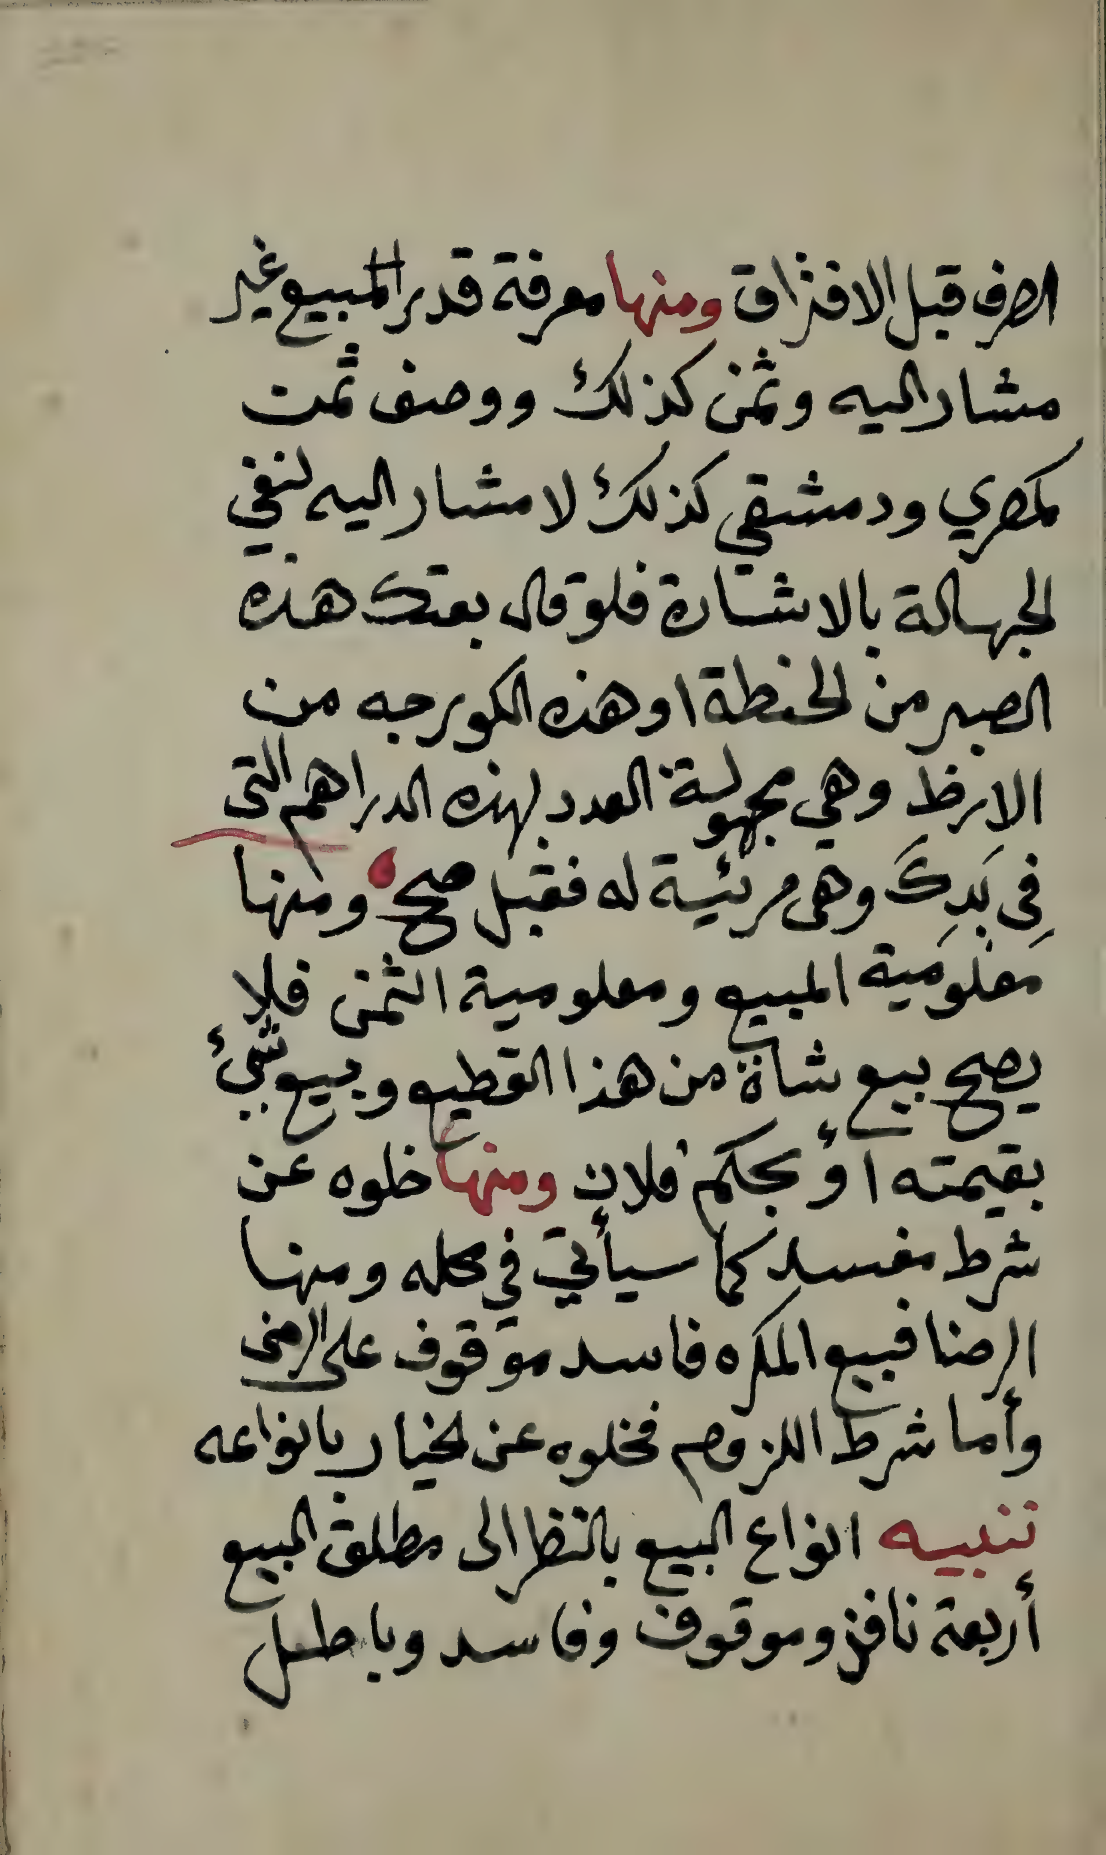 الصرف قبل الافتراق ومنها معرفة قدر المبيع غير
مشار اليه وثمن كذلك ووصف ثمت
كمصري ودمشقي كذلك لا مشار اليه لنفي
لجهالة بالاشارة فلو قال بعتك هذه
الصبر من لحنطة او هذه الكورجه من
الارظ وهي مجهولة العدد بهذه الدراهم التى
فِى يَدِكَ وهى مرئية له فقبل صح ومنها
معلومية المبيع ومعلومية الثمن فلا
يصح بيع شاة من هذا القطيع وبيع شيئ
بقيمته أو بحكم فلان ومنها خلوه عن
شرط مفسد كما سيأتي في محله ومنها
الرضا فبيع المكره فاسد موقوف على الرضى
وأما شرط اللزوم فخلوه عن لخيار بانواعه
تنبيه انواع البيع بالنظر الى مطلق البيع
أربعة نافز وموقوف وفاسد وباطل